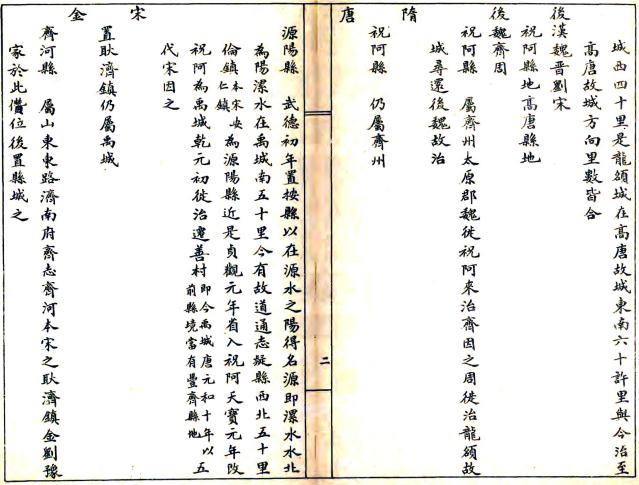 城西四十里是龍頟城在高唐故城東南六十許里與今治至
高唐故城方向里數皆合
後漢魏晉劉宋
祝阿縣地高唐縣地
後魏齊周
祝阿縣 屬齊州太原郡魏徙祝阿來治齊因之周徙治龍頟故
城尋還後魏故治
隋
祝阿縣 仍屬齊州
唐
二
源陽縣 武德初年置按縣以在源水之陽得名源即漯水水北
為陽漯水在禹城南五十里今有故道通志疑縣西北五十里
倫鎮本宋安仁鎮為源陽縣近是貞觀元年省入祝阿天寶元年改
祝阿為禹城乾元初徙治遷善村即今禹城唐元和十年以前縣境當有豐齊縣地五
代宋因之
宋
置耿濟鎮仍屬禹城
金
齊河縣 屬山東東路濟南府齊志齊河本宋之耿濟鎮金劉豫
家於此僭位後置縣城之